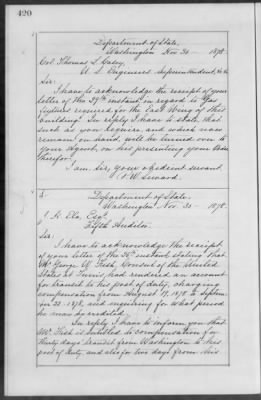 420
Department of State,
Washington Nov. 30 - 1878.
Col. Thomas L. Casey,
U. S. Engineers Superintendent, &c. &c.
Sir:
I have to acknowledge the receipt of your
letter of the 29th instant, in regard to Gas
fixtures required for the East Wing of this
building. In reply I have to state, that
such as you require, and which now
remain on hand, will be turned over to
your Agent, on his presenting your Order
therefor.
I am Sir, your obedient servant
F. W. Seward.
Department of State,
Washington, Nov. 30 - 1878.
Ela, Esqr.
Fifth Auditor.
Sir:
I have to acknowledge the receipt
of your letter of the instant, stating that
Mr. George W. Fish, Consul of the United
States at Tunis, had rendered an account
for transit to his post of duty, charging
compensation from August 17, 1878 to Septem-
ber 1878, and inquiring for what period
he may be credited.
In reply I have to inform you that
Mr. Fish is entitled to compensation for
thirty days transit from Washington to his
post of duty and also for two days from his